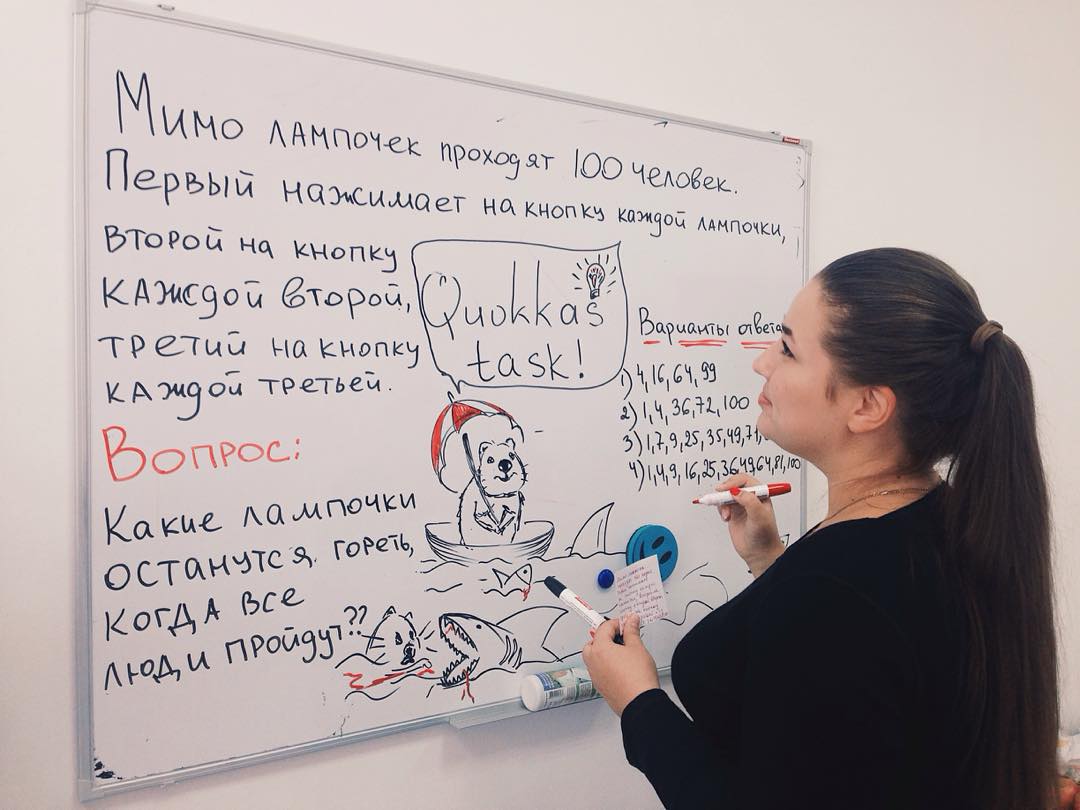 Мимо лампочек проходят 100 человек.
Первый нажимает на кнопку каждой лампочки,
второй на кнопку
каждой второй,
третий на кнопку
каждой третьей.
Вопрос:
Какие лампочки
останутся гореть,
когда все
люди пройдут??
Quokka's
task!
Варианты ответа
1) 4, 16, 64, 99
2) 1, 4, 36, 72, 100
3) 1, 7, 9, 25, 35, 49, 71,
4) 1, 4, 9, 16, 25, 36, 49, 64, 81, 100